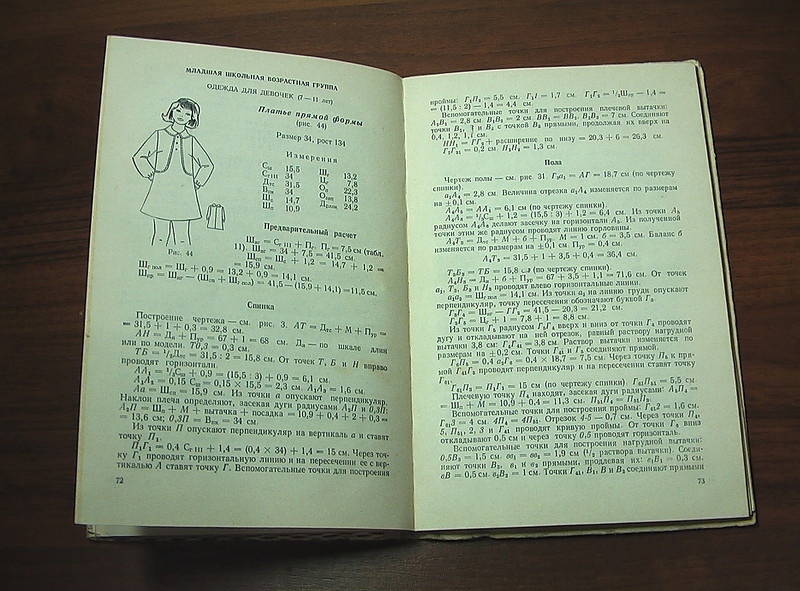 МЛАДШАЯ ШКОЛЬНАЯ ВОЗРАСТНАЯ ГРУППА
ОДЕЖДА ДЛЯ ДЕВОЧЕК (7—11 лет)
Платье прямой формы
(рис. 44)
Размер 34, рост 134
Измерения
Сш 15,5 Шг 13,2
СгIII 34 Цг 7,8
Дтс 31,5 Оп 22,3
Впк 34 Озап 13,8
Шп 10,9 Дрлок 24,2
Рис. 44
Предварительный расчет
Шпр = СгIII + Пг. Пг = 7,5 см (табл.
1). = 34 + 7,5 = 41,5 см.
= Шс + 1,2 = 14,7 + 1,2 =
= 15,9 см.
Шг пол = Шг + 0,9 = 13,2 + 0,9 = 14,1 см.
= 41,5 — (15,9 + 14,1) = 11,5 см.
Спинка
Построение чертежа — см. рис. 3. АТ = Дтс + М + Пур =
= 31,5 + 1 + 0,3 = 32,8 см.
АН = Ди + Пур = 67 + 1 = 68 см. Ди — по шкале длин
или по модели. Т0,3 = 0,3 см.
ТБ = ½Дтс = 31,5 : 2 = 15,8 см. От точек Т, Б и Н вправо
проводят горизонтали.
АА₁ = ⅓Сш + 0,9 = (15,5 : 3) + 0,9 = 6,1 см.
А₁А₂ = 0,15 Сш = 0,15 × 15,5 = 2,3 см. = 1,6 см.
Аа = = 15,9 см. Из точки а опускают перпендикуляр.
Наклон плеча определяют, засекая дуги радиусами А₂П и 0,3П:
А₂П = Шп + М + вытачка + посадка = 10,9 + 0,4 + 2 + 0,3 =
= 13,6 см; 0,3П = Впк = 34 см.
Из точки П опускают перпендикуляр на вертикаль а и ставят
точку П₁.
П₁Г₁ = 0,4 СгIII + 1,4 = (0,4 × 34) + 1,4 = 15 см. Через точ-
ку Г₁ проводят горизонтальную линию и на пересечении ее с вер-
тикалью А ставят точку Г. Вспомогательные точки для построения
72
проймы: Г₁П₂ = 5,5 см. Г₁1 = 1,7 см. Г₁Г₂ = ½Шпр — 1,4 =
= (11,5 : 2) — 1,4 = 4,4 см.
Вспомогательные точки для построения плечевой вытачки:
А₂В₁ = 2,8 см. В₁В₂ = 2 см. ВВ₁ = ВВ₂. В₁В₃ = 7 см. Соединяют
точки В₁, и В₂ с точкой В₃ прямыми, продолжая их вверх на
0,4, 1,2, 1,1 см.
НН₁ = ГГ₂ + расширение по низу = 20,3 + 6 = 26,3 см.
= 0,2 см. Н₁Н₂ = 1,3 см.
Пола
Чертеж полы — см. рис. 31. Г₃а₁ = АГ = 18,7 см (по чертежу
спинки).
а₁А₄ = 2,8 см. Величина отрезка а₁А₄ изменяется по размерам
на ±0,1 см.
А₄А₅ = АА₁ = 6,1 см (по чертежу спинки).
= ⅓Сш + 1,2 = (15,5 : 3) + 1,2 = 6,4 см. Из точки А₅
радиусом делают засечку на горизонтали А₄. Из полученной
точки этим же радиусом проводят линию горловины.
А₄Т₃ = Дтс + М + б + Пур. М = 1 см. б = 3,5 см. Баланс б
изменяется по размерам на ±0,1 см. Пур = 0,4 см.
А₄Т₃ = 31,5 + 1 + 3,5 + 0,4 = 36,4 см.
Т₃Б₃ = ТБ = 15,8 см (по чертежу спинки).
А₄Н₃ = Ди + б + Пур = 67 + 3,5 + 1,1 = 71,6 см. От точек
а₁, Т₃, Б₃ и Н₃ проводят влево горизонтальные линии.
а₁а₂ = Шг пол = 14,1 см. Из точки а₂ на линию груди опускают
перпендикуляр, точку пересечения обозначают буквой Г₄.
— ГГ₂ = 41,5 — 20,3 = 21,2 см.
= Цг + 1 = 7,8 + 1 = 8,8 см.
Из точки радиусом вверх и вниз от точки Г₄ проводят
дугу и откладывают на ней отрезок, равный раствору нагрудной
вытачки 3,8 см: Г₄Г₄₁ = 3,8 см. Раствор вытачки изменяется по
размерам на ±0,2 см. Точки Г₄₁ и соединяют прямой.
= 0,4 = 0,4 × 18,7 = 7,5 см. Через точку к пря-
мой проводят перпендикуляр и на пересечении ставят точку
Г₆₁.
= П₁Г₁ = 15 см (по чертежу спинки). = 5,5 см.
Плечевую точку П₄ находят, засекая дуги радиусами: А₅П₄ =
= Шп + М = 10,9 + 0,4 = 11,3 см.
Вспомогательные точки для построения проймы: 2 = 1,6 см.
3 = 4 см. Отрезок 4—5 = 0,7 см. Через точки П₄,
5, 2, 3 и проводят кривую проймы. От точки вниз
откладывают 0,5 см и через точку 0,5 проводят горизонталь.
Вспомогательные точки для построения нагрудной вытачки:
0,5В₃ = 1,5 см. = 1,9 см (½ раствора вытачки). Соеди-
няют точки В₃, в₁ и в₂ прямыми, продлевая их: = 0,3 см,
вВ = 0,5 см. в₂В₂ = 1 см. Точки Г₄₁, В₁, В и В₂ соединяют прямыми
73